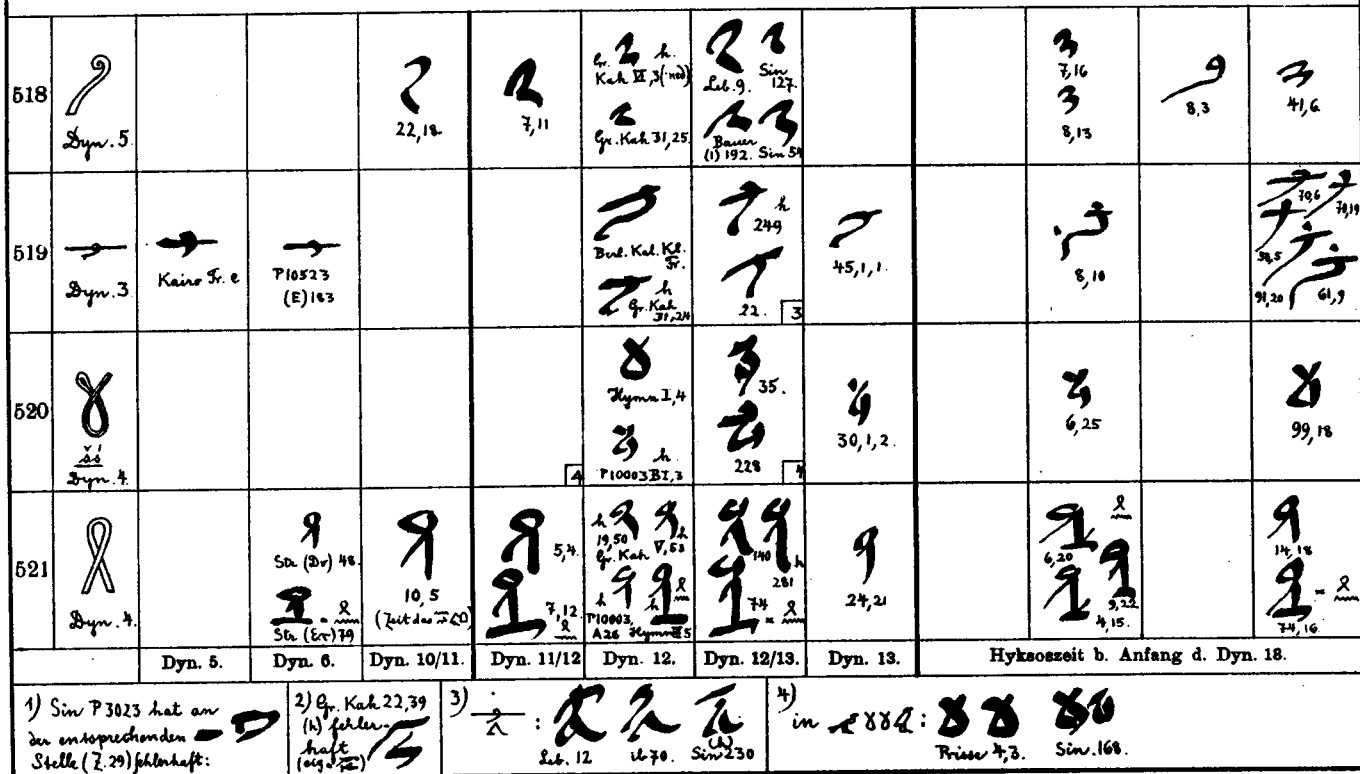 518
Dyn. 5.
22,18
7,11
Gr. h.
Kah VI, 3
Gr. Kah 31,25.
Leb. 9. Sin 127.
Bauer
(1) 192. Sin 54
7,16
8,13
8,3
41,6
519
Dyn. 3
Kairo Fr. e
P10523
(E) 183
Berl. Kah. Kl.
Fr.
h
Gr. Kah
31,24
h
249
22. 3
45,1,1.
8,10
70,6
70,19
91,20
61,9
520
šś
Dyn. 4.
4
Hymn I,4
h
P10003 BI,3
35.
228 4
30,1,2.
6,25
99,18
521
Dyn. 4.
Str (Dr) 48.
Str (Er) 79
10,5
5,4.
7,12
h h
19,50 V,53
Gr. Kah
h h
P10003,
A26
140 h
281
74
24,21
6,20
9,22
4,15.
14,18
74,16.
Dyn. 5. Dyn. 6. Dyn. 10/11. Dyn. 11/12 Dyn. 12. Dyn. 12/13. Dyn. 13. Hyksoszeit b. Anfang d. Dyn. 18.
1) Sin P 3023 hat an
der entsprechenden
Stelle (Z. 29) fehlerhaft:
2) Gr. Kah 22,39
(h) fehler-
haft
3) :
Leb. 12 ib 70. (h) Sin 230
4)
in :
Prisse 4,3. Sin. 168.